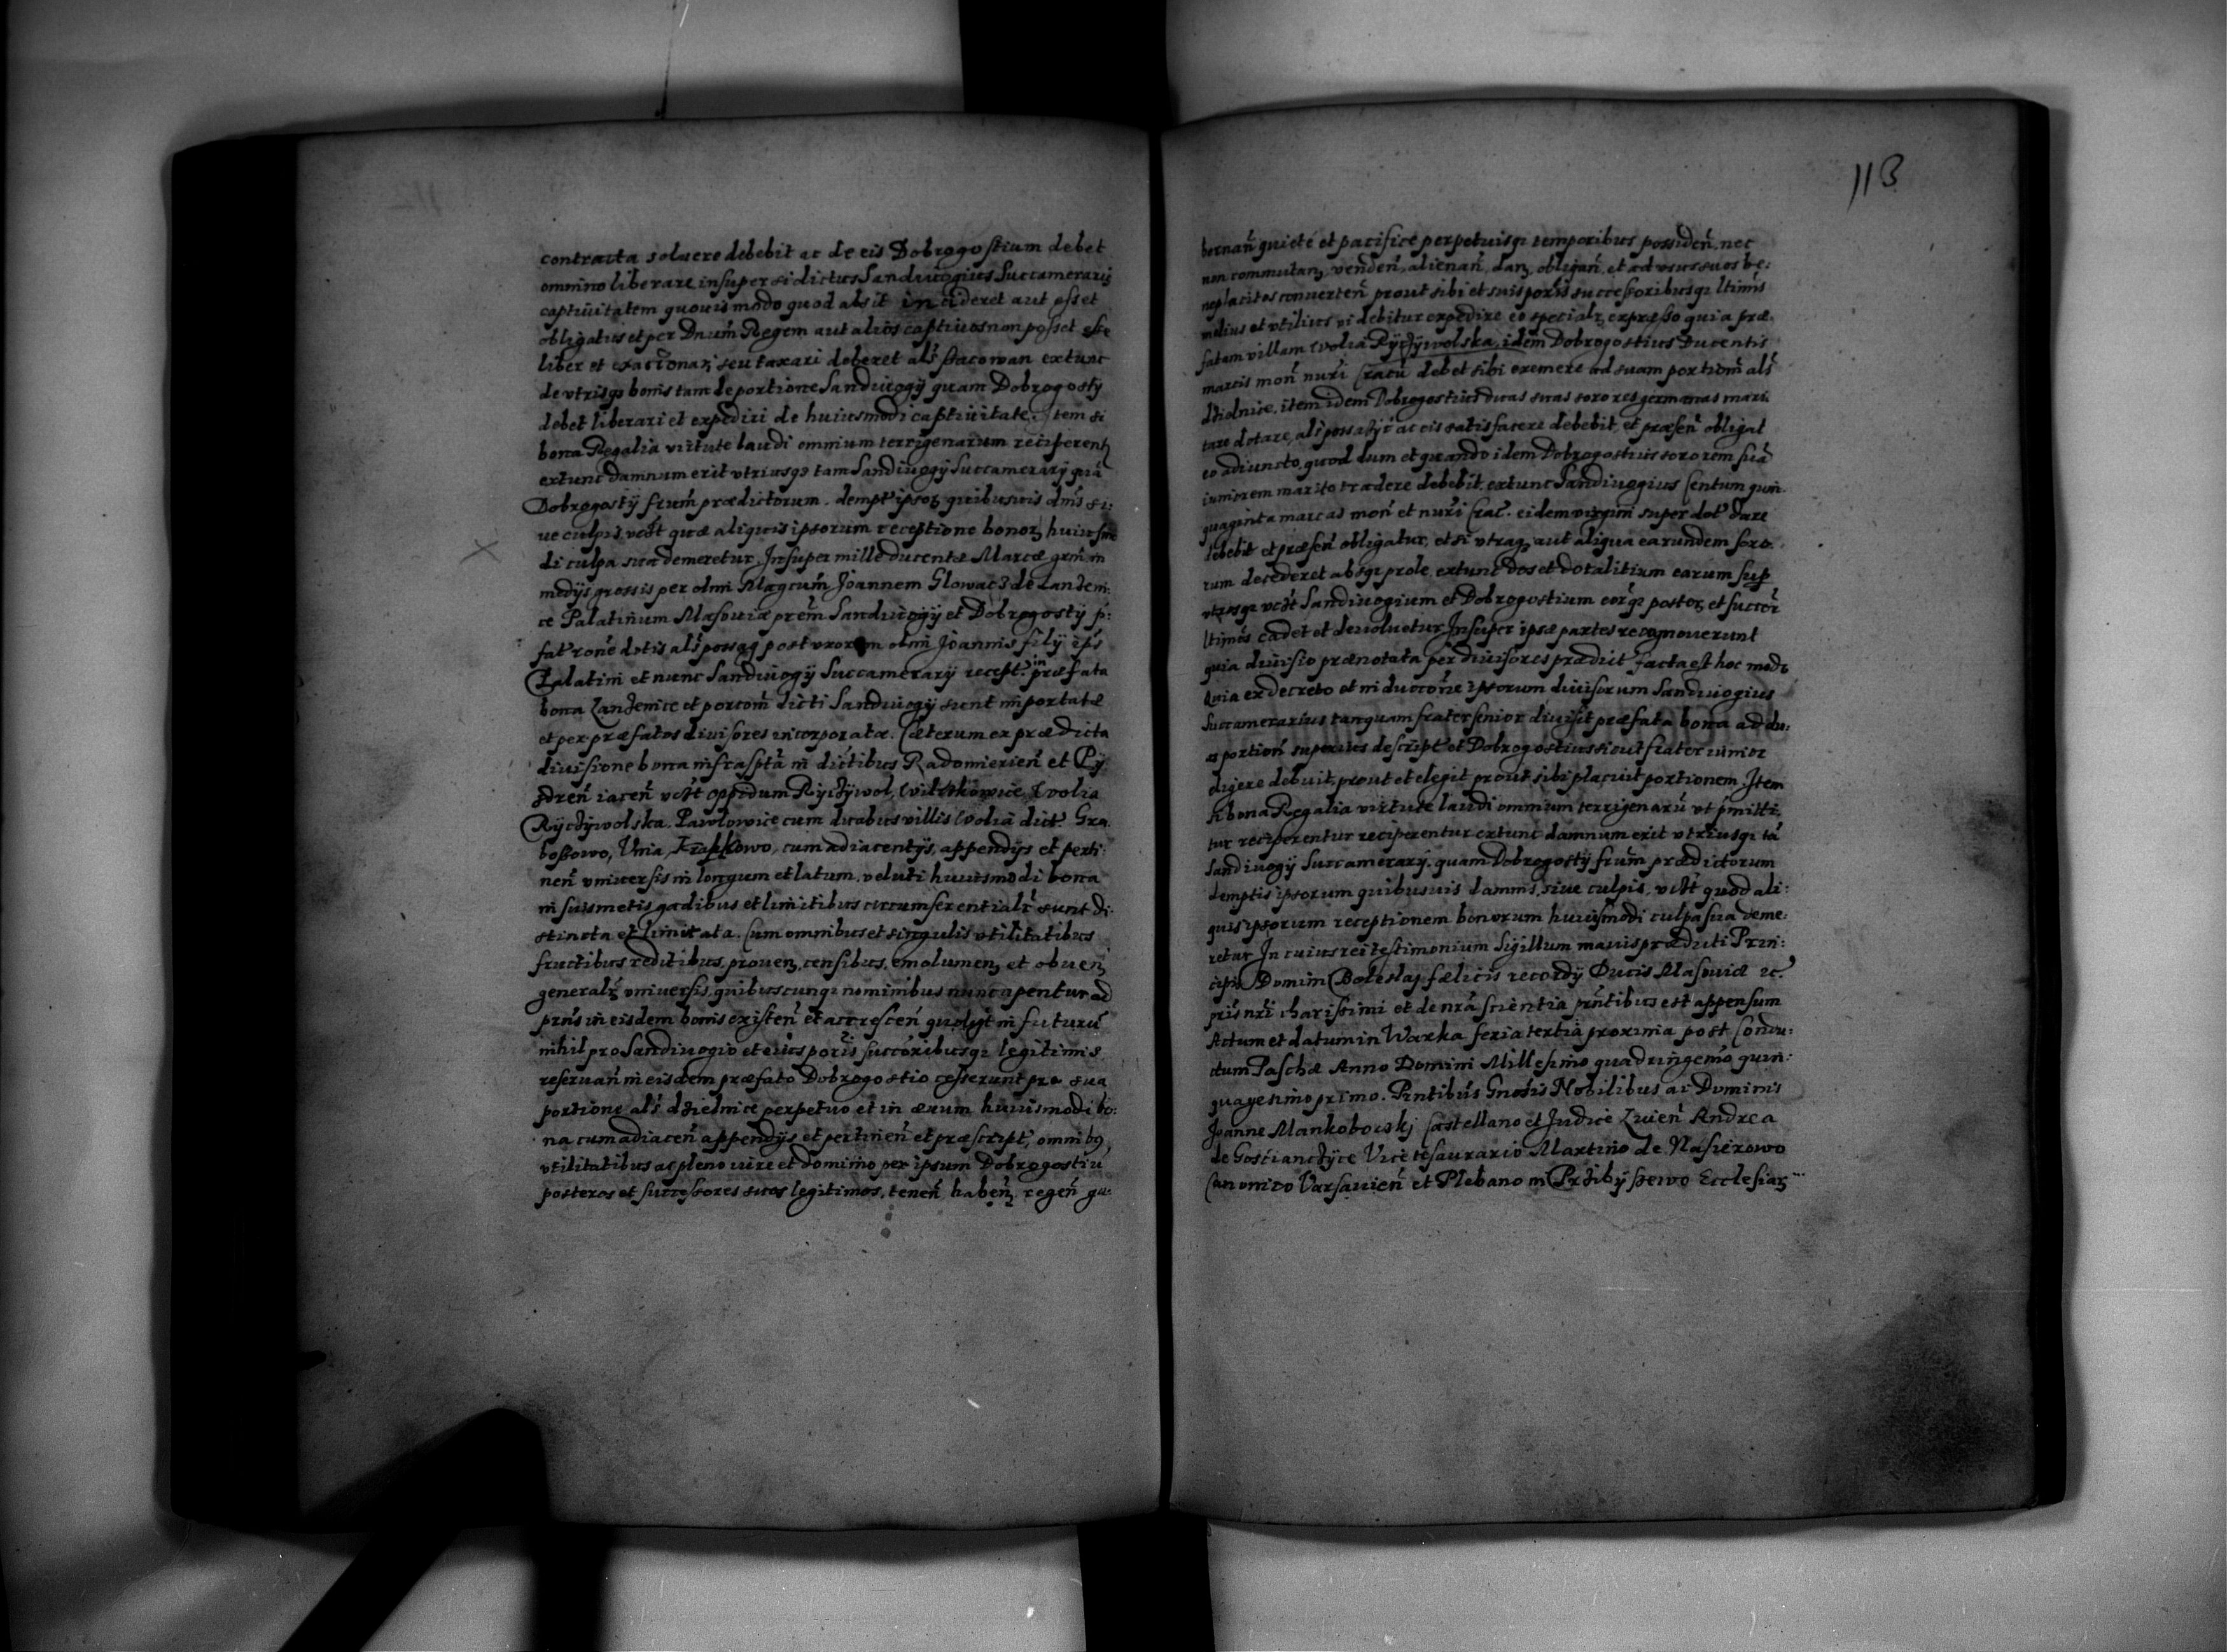 contracta soluere debebit ac de eis Dobrogostium debet
omnino liberare insuper si dictus Sandiuogius Succamerarij
captiuitatem quouis modo quod absit incideret aut esset
obligatus et per Dnum Regem aut alios captiuos non posset esse
liber et exactionaz seu taxari deberet als stacowan extunc
de vtrisqz bonis tam de portione Sandiuogij quam Dobrogostij
debet liberari et expediri de huiusmodi captiuitate. Item si
bona Regalia virtute laudi omnium terrigenarum reciperentz
extunc damnum erit vtriusqz tam Sandiuogij Succamerarij quā
Dobrogostij frum prædictorum. dempt ipsoz quibusuis dmis si:
ue culpis vdt quæ aliquis ipsorum receptione bonoz huiusmo
di culpa sua demeretur. Insuper mille ducentæ Marcæ grm in
medijs grossis per olim Magcum Joannem Glowacz de Landem:
ce Palatinum Masouiæ prem Sandiuogij et Dobrogostij p:
fat rone dotis als possag post vxorem olim Joannis filij ips
Palatini et nunc Sandiuogij Succamerarij recept in præfata
bona Landemice et portom dicti Sandiuogij sunt importatæ
et per præfatos diuisores incorporatæ. Cæterum ex prædicta
diuisione bona infrasptā in dictibus Radomierien et Py
zdren iacen vdt oppidum Ryczywol, Wilczkowice, Wolia
Ryczywolska. Pawlowice cum duabus villis Wolia dict Gra
bossowo, Vnia, cum adiacentijs, appendijs et perti
nen vniuersis in longum et latum, veluti huiusmodi bona
in suis metis gadibus et limitibus circumferentialr sunt di:
stincta et limitata. Cum omnibus et singulis vtilitatibus
fructibus reditibus, prouen, censibus, emolumen, et obuen
generalr vniuersis, quibuscunqz nominibus nuncupentur ad
prns in eisdem bonis existen et accrescen quolyt in futurū
nihil pro Sandiuogio et eius poris succoribusqz legitimis
reseruan in eisdem præfato Dobrogostio cesserunt pro sua
portione als dzielnice perpetuo et in æuum huiusmodi bo:
na cum adiacen appendijs et pertinen et præscript, omnibq
vtilitatibus ac pleno iure et dominio per ipsum Dobrogostiū
posteros et successores suos legitimos, tenen, haben, regen gu:
113
bernan quiete et pacifice perpetuisqz temporibus possiden. nec
non commutan, venden, alienan, dan, obligan, et ad vsus suos be:
neplacitos conuerten prout sibi et suis poris successoribusqz ltimis
melius et vtilius videbitur expedire eo specialr, expresso quia præ:
fatam villam Wolia Ryczywolska, idem Dobrogostius Ducentis
marcis mon nuri Cracū debet sibi exemere ad suam portiom als
dzielnice, item idem Dobrogostius duas suas sorores germanas mari:
tare dotare, als possazyc ac eis satisfacere debebit, et præsen obligat
eo adiuncto, quod dum et quando idem Dobrogostius sororem suā
iuniorem marito tradere debebit, extunc Sandiuogius Centum quin:
quaginta marcas mon et nuri Crac. eidem virgini super dot dare
debebit et præsen obligatur, et si vtraqz aut aliqua earundem soro:
rum decederet absqz prole, extunc Dos et dotalitium earum sup
vtrosqz vdt Sandiuogium et Dobrogostium eorqz postoz et succer
ltimos cadet et deuoluetur. Insuper ipsæ partes recognouerunt
quia diuisio prænotata per diuisores prædict facta est hoc modo
Quia ex decreto et inductione ipsorum diuisorum Sandiuogius
Succamerarius tanquam frater senior diuisit præfata bona ad du:
as portion superius descript et Dobrogostius sicut frater iunior
eligere debuit, prout et elegit prout sibi placuit portionem. Item
si bona Regalia virtute laudi omnium terrigenarū vt pmitti:
tur reciperentur reciperentur extunc damnum exit vtriusqz tā
Sandiuogij Succamerarij. quam Dobrogostij frum prædictorum
demptis ipsorum quibusuis damnis, siue culpis, vdt quod ali:
quis ipsorum receptionem bonorum huiusmodi culpa sua deme:
retur In cuius rei testimonium Sigillum maius prædicti Prin:
cipis Domini Boleslaj fælicis recordij Ducis Masouiæ &c.
pris nri charissimi et de nra scientia pntibus est appensum
Actum et datum in Warka feria tertia proxima post Condu:
ctum Paschæ Anno Domini Millesimo quadringemo quin:
quagesimo primo. Pntibus Gnosis Nobilibus ac Dominis
Joanne Mankobowskj Castellano et Judice Lwien Andrea
de Gosćianczyce Vice tesaurario Martino de Nasierowo
Canonico Varsauien et Plebano in Przibyssewo Ecclesiaz